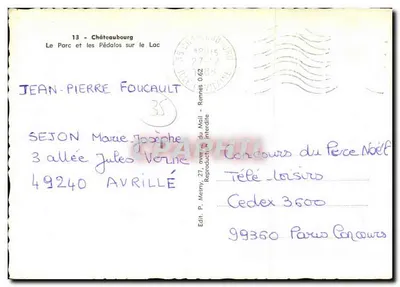 13 - Châteaubourg
Le Parc et les Pédalos sur le Lac
JEAN-PIERRE FOUCAULT
35
SEJON Marie Josèphe
3 allée Jules Verne
49240 AVRILLÉ
Edit. P. 27, du Mail - Rennes 0.62
Reproduction interdite
Concours du Père Noël
Télé-Loisirs
Cedex 3600
99360 Paris Concours